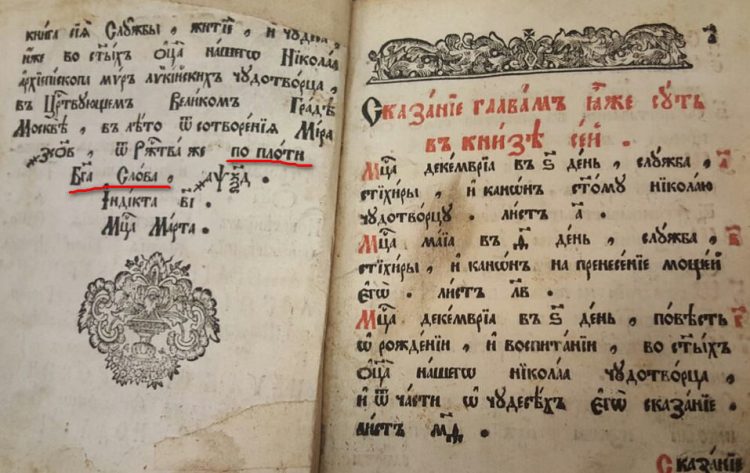 книга сїѧ Слꙋжбы , житїе , и чꙋдеса ,
иже во ст҃ыхъ ѻц҃а нашегѡ Нїкола́ѧ
архїепи́скопа мѵръ лѷкїйскихъ чꙋдотво́рца ,
въ Црⷭ҇твꙋющемъ Вели́комъ Гра́дѣ
Москвѣ̀ , въ лѣ́то ѿ сотворе́нїѧ Мі́ра
, ѿ Ржⷭ҇тва́ же по пло́ти
Бг҃а Сло́ва ,
І҆ндїкта в҃і .
Мцⷭ҇а Ма́рта .
Сказа́нїе глава́мъ ꙗ҆́же сꙋ́ть
въ кни́зѣ се́й .
Мцⷭ҇а деке́мврїа въ ѕ҃ де́нь , слꙋ́жба , а҃
стїхи́ры , и҆ кано́нъ ст҃о́мꙋ нїкола́ю
чꙋдотво́рцꙋ . ли́стъ а҃ .
Мцⷭ҇а ма́їа въ ѳ҃ де́нь , слꙋ́жба , в҃
стїхи́ры , и҆ кано́нъ на пренесе́нїе моще́й
є҆гѡ̀ . ли́стъ л҃в .
Мцⷭ҇а деке́мврїа въ ѕ҃ де́нь , по́вѣсть г҃
ѡ҆ рожде́нїи , и҆ воспита́нїи , во ст҃ы́хъ
ѻ҆ц҃а̀ на́шегѡ нїкола́а чꙋдотво́рца ,
и҆ ѿ ча́сти ѡ҆ чꙋдесѣ́хъ є҆гѡ̀ сказа́нїе .
ли́стъ м҃д .
Сказа́нїе